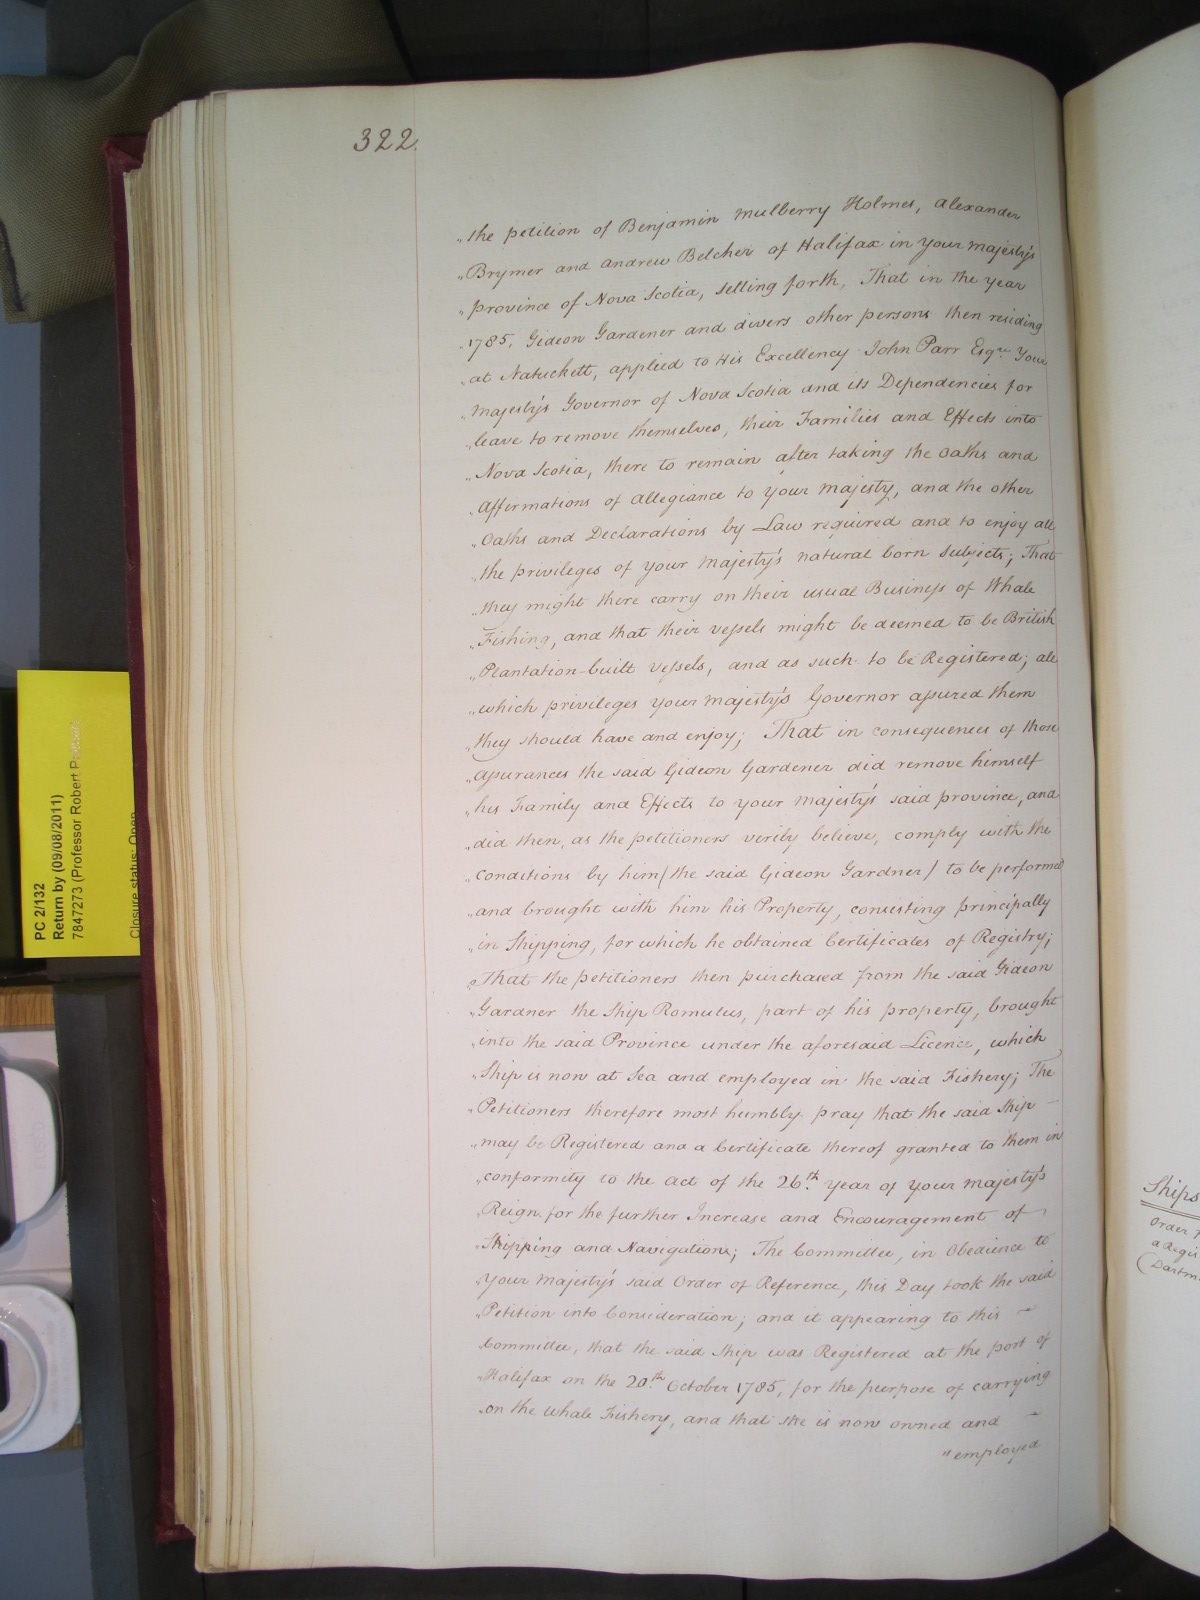 322.
„the petition of Benjamin Mulberry Holmes, Alexander
„Brymer and Andrew Belcher of Halifax in your Majesty's
„province of Nova Scotia, setting forth, That in the year
„1785, Gideon Gardener and divers other persons then residing
„at Natuckett, applied to His Excellency John Parr Esqre. Your
„Majesty's Governor of Nova Scotia and its Dependencies for
„leave to remove themselves, their Families and Effects into
„Nova Scotia, there to remain after taking the Oaths and
„Affirmations of Allegiance to your Majesty, and the other
„Oaths and Declarations by Law required and to enjoy all
„the privileges of your Majesty's natural born subjects; That
„they might there carry on their usual Business of Whale
„Fishing, and that their vessels might be deemed to be British
„Plantation-built vessels, and as such to be Registered; all
„which privileges your Majesty's Governor assured them
„they should have and enjoy; That in consequences of those
„Assurances the said Gideon Gardener did remove himself
„his Family and Effects to your Majesty's said province, and
„did then, as the petitioners verily believe, comply with the
„conditions by him (the said Gideon Gardner) to be performed
„and brought with him his Property, consisting principally
„in Shipping, for which he obtained Certificates of Registry;
„That the petitioners then purchased from the said Gideon
„Gardner the Ship Romulus, part of his property, brought
„into the said Province under the aforesaid Licence, which
„Ship is now at Sea and employed in the said Fishery; The
„Petitioners therefore most humbly pray that the said Ship
„may be Registered and a Certificate thereof granted to them in
„conformity to the Act of the 26th. year of your Majesty's
„Reign for the further Increase and Encouragement of
„Shipping and Navigation; The Committee, in Obedience to
„your Majesty's said Order of Reference, this Day took the said
„Petition into Consideration; and it appearing to this
„Committee, that the said Ship was Registered at the port of
„Halifax on the 20th. October 1785, for the purpose of carrying
„on the Whale Fishery, and that she is now owned and
"employed
PC 2/132
Return by (09/08/2011)
7847273 (Professor Robert
Closure status: Open
Ships
Order
a Regi
(Dartm